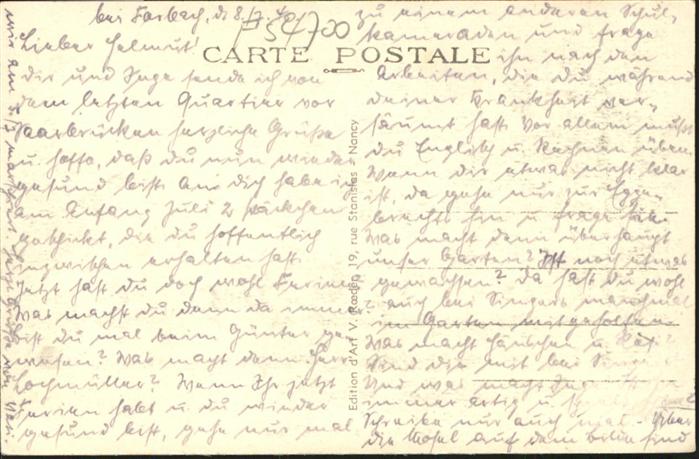 bei Forbach, d. 8.7.40
Lieber Helmut!
P 54700
CARTE POSTALE
Dir und Inge sende ich von
dem letzten Quartier vor
Saarbrücken herzliche Grüße
u. hoffe, daß du nun wieder
gesund bist. An dich habe ich
am Anfang Juli 2 Päckchen
geschickt, die du hoffentlich
inzwischen erhalten hast.
Jetzt hast du doch wohl Ferien
Was machst du denn da immer
bist du mal beim Günter ge-
wesen? Was macht denn Herr
Lochmüller? Wenn Ihr jetzt
Ferien habt u. du wieder
gesund bist, gehe nur mal
zu einem anderen Schul-
kameraden und frage
ihn nach den
Arbeiten, die du während
deiner Krankheit ver-
säumt hast. Vor allem mußt
du Englisch u. Rechnen üben.
Wenn dir etwas nicht klar
ist, da gehe nur zur
hin u. frage sie.
Was macht denn überhaupt
unser Garten? Ist noch etwas
gewachsen? Da hast du wohl
auch bei Singers manchmal
im Garten mitgeholfen.
Was macht Hänschen u.
Sind die mit bei
Und was macht Inge
immer artig u.
Schreibe nur auch mal.
die Mosel auf dem Bilde sind
wir am marschiert
Edition d'Art V. Rœder, 19, rue Stanislas - Nancy